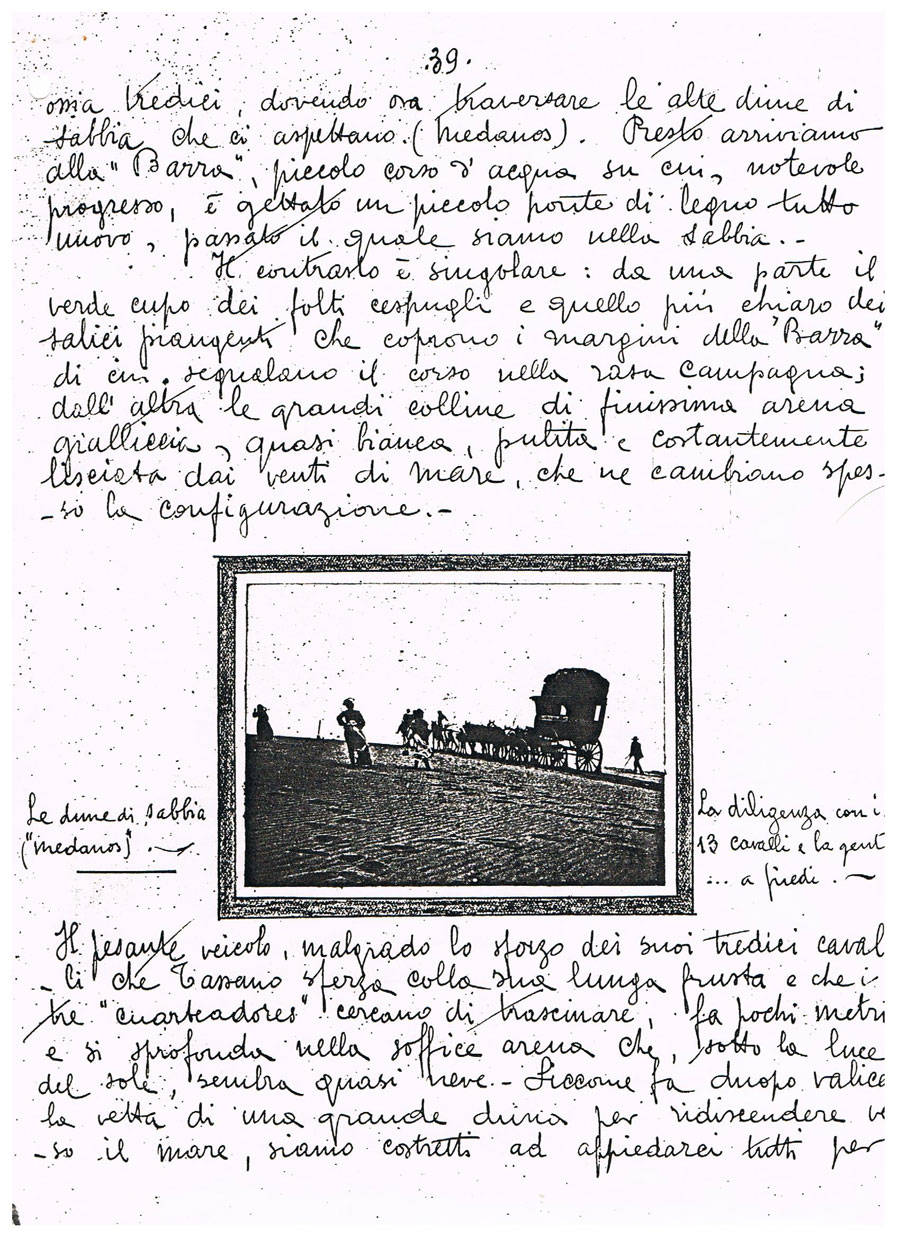 .39.
ossia tredici, dovendo ora traversare le alte dune di
sabbia che ci aspettano. (Medanos). Presto arriviamo
alla "Barra", piccolo corso d'acqua su cui, notevole
progresso, è gettato un piccolo ponte di legno tutto
nuovo, passato il quale siamo nella sabbia.-
Il contrasto è singolare: da una parte il
verde cupo dei folti cespugli e quello più chiaro dei
salici piangenti che coprono i margini della "Barra"
di cui segnalano il corso nella rasa campagna;
dall'altra le grandi colline di finissima arena
gialliccia, quasi bianca, pulita e costantemente
lisciata dai venti di mare, che ne cambiano spes-
-so la configurazione.-
Le dune di sabbia
("Medanos").-
La diligenza con i
13 cavalli e la gent
... a piedi.-
Il pesante veicolo, malgrado lo sforzo dei suoi tredici caval
-li che Tassano sferza colla sua lunga frusta e che i
tre "cuarteadores" cercano di trascinare, fa pochi metri
e si sprofonda nella soffice arena che, sotto la luce
del sole, sembra quasi neve.- Siccome fa duopo valica
la vetta di una grande duna per ridiscendere ve
-so il mare, siamo costretti ad appiedarci tutti per